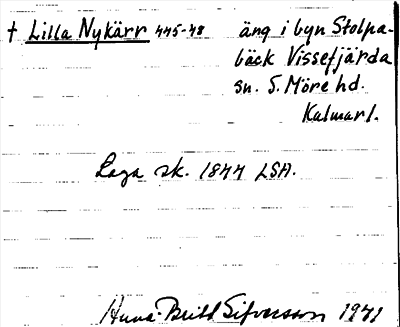 † Lilla Nykärr 445-48 äng i byn Stolpa-
bäck Vissefjärda
sn. S. Möre hd.
Kalmar l.
Laga sk. 1844 LSA.
Anna-Britt Sifversson 1941